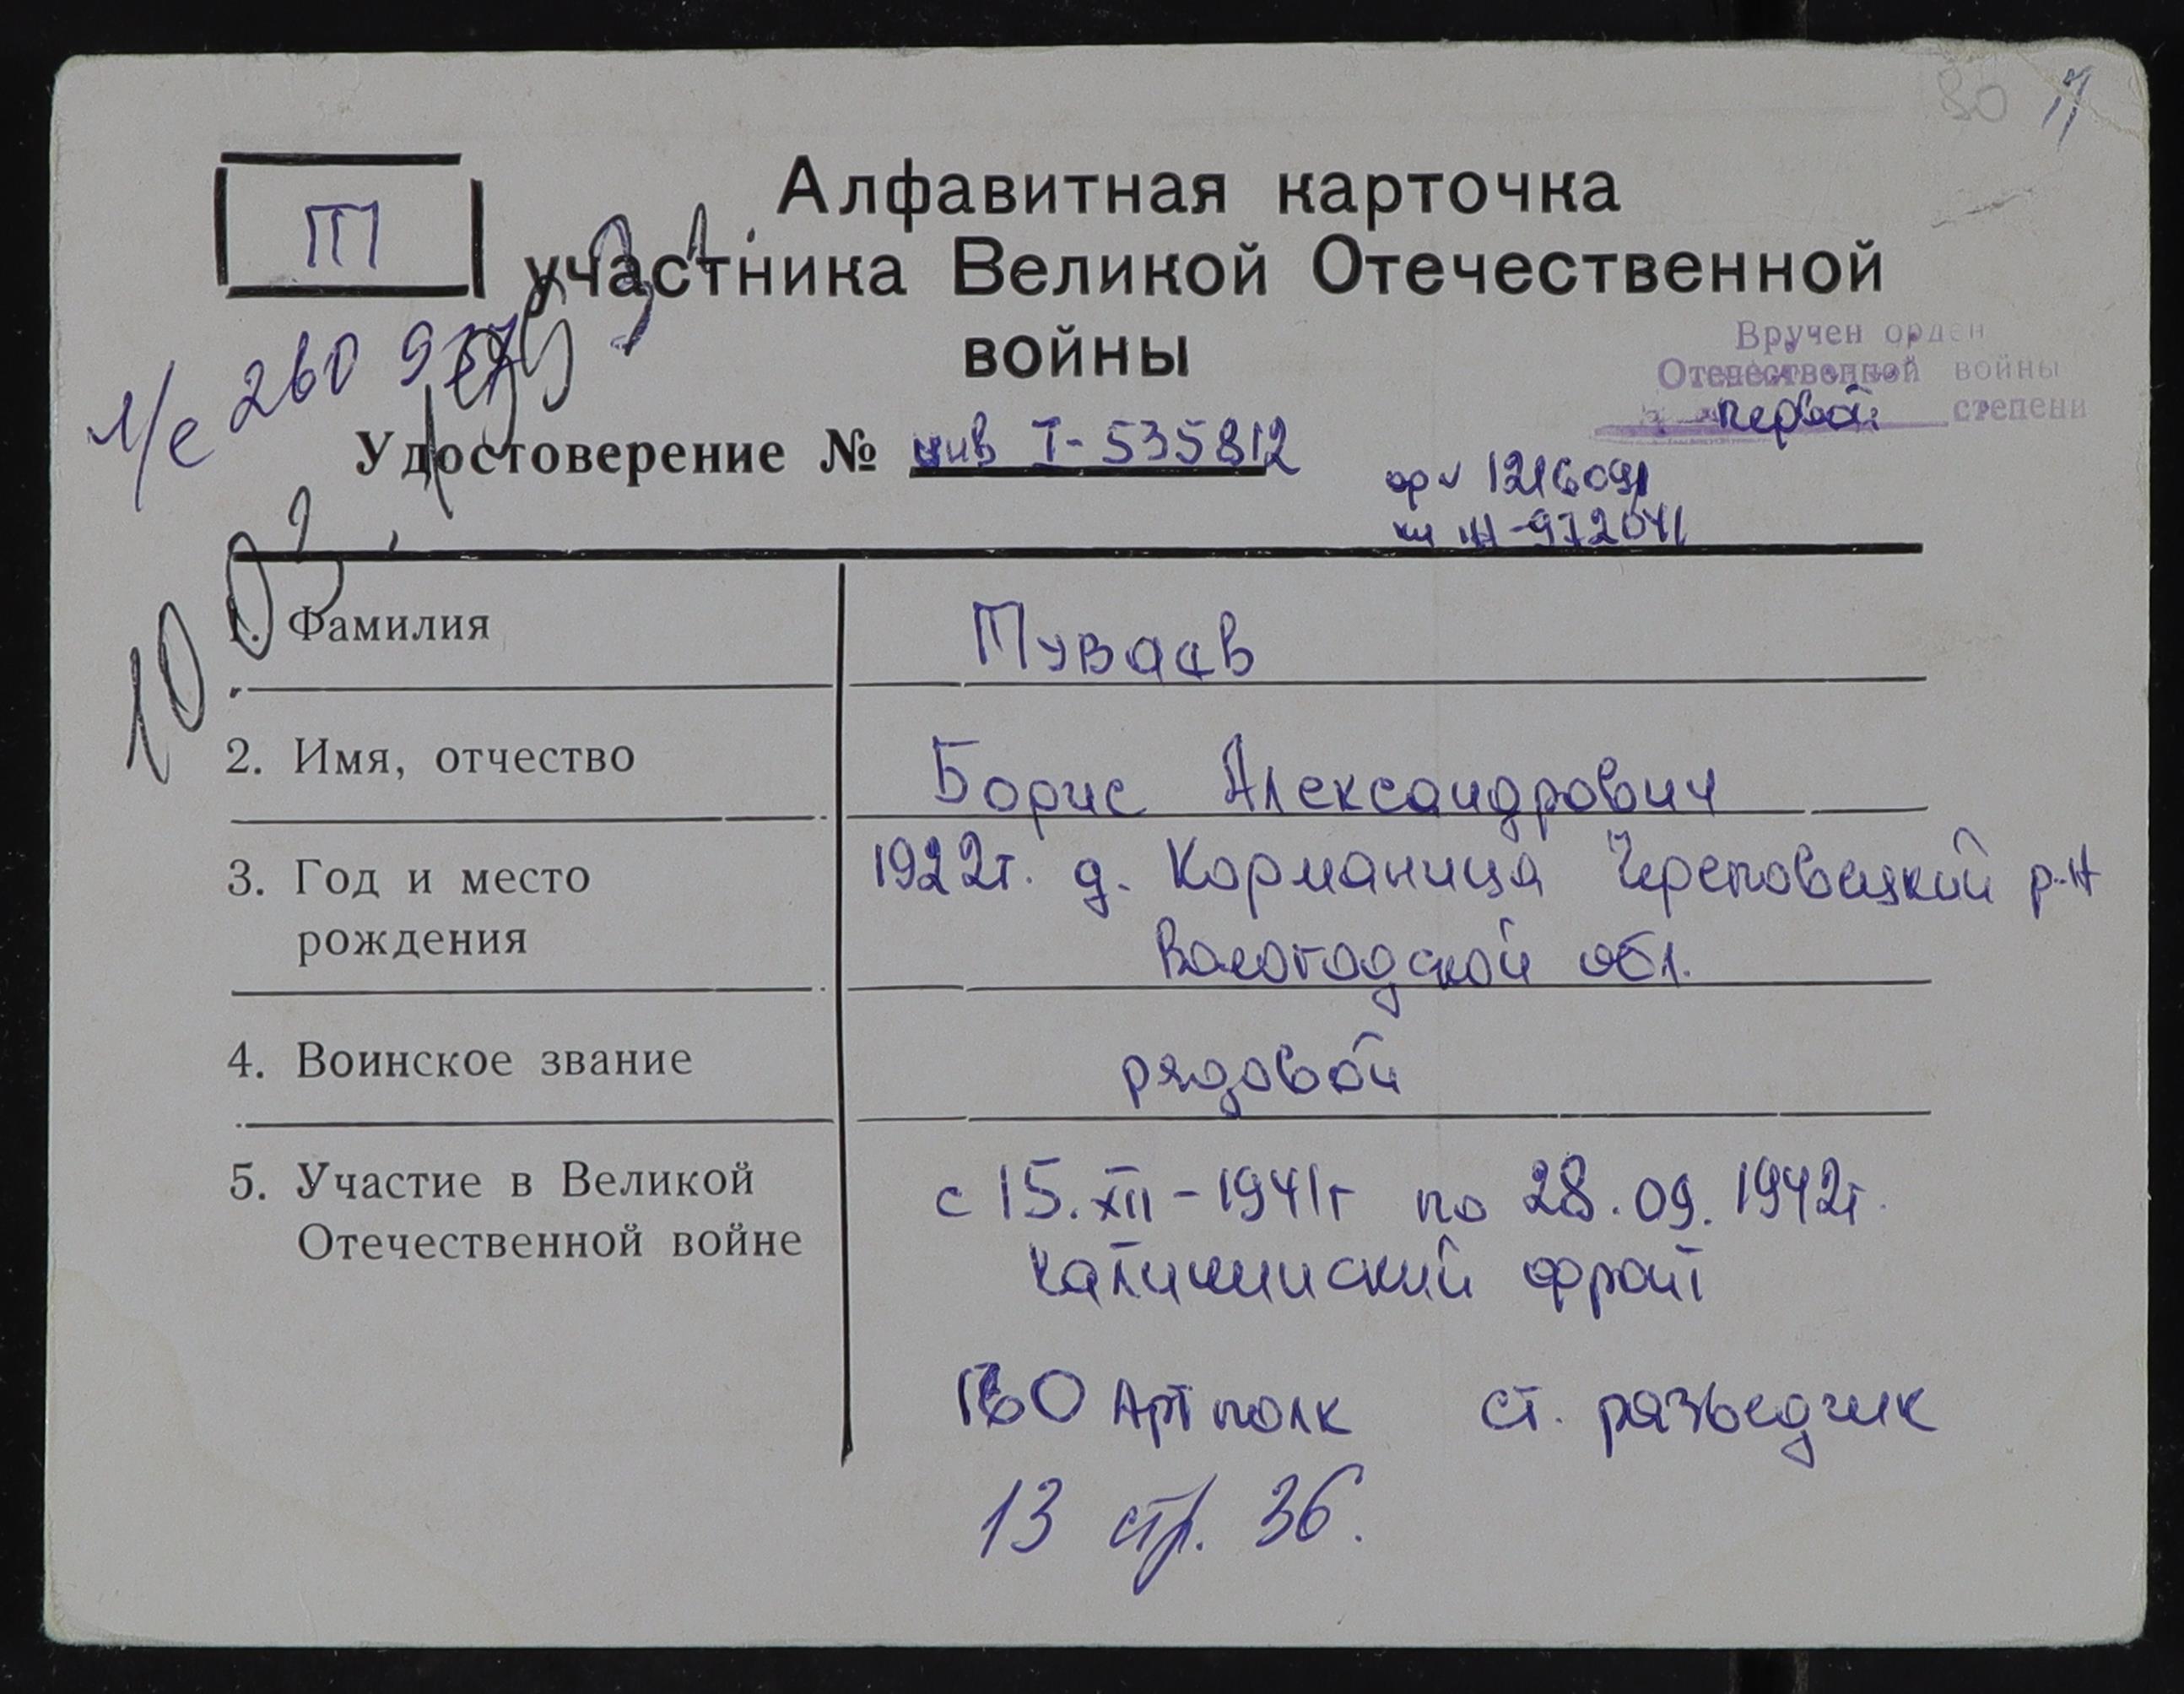 80
Т
Алфавитная карточка
участника Великой Отечественной
войны
Вручен орден
Отечественной войны
первой степени
260 937
Удостоверение № инв I-535812
1216091
-972041
10.03.
1. Фамилия
Туваев
2. Имя, отчество
Борис Александрович
3. Год и место
рождения
1922г. д. Корманица Череповецкий р-н
Вологодской обл.
4. Воинское звание
рядовой
5. Участие в Великой
Отечественной войне
с 15.XII-1941г по 28.09.1942г.
Калининский фронт
Артполк ст. разведчик
13 стр. 36.